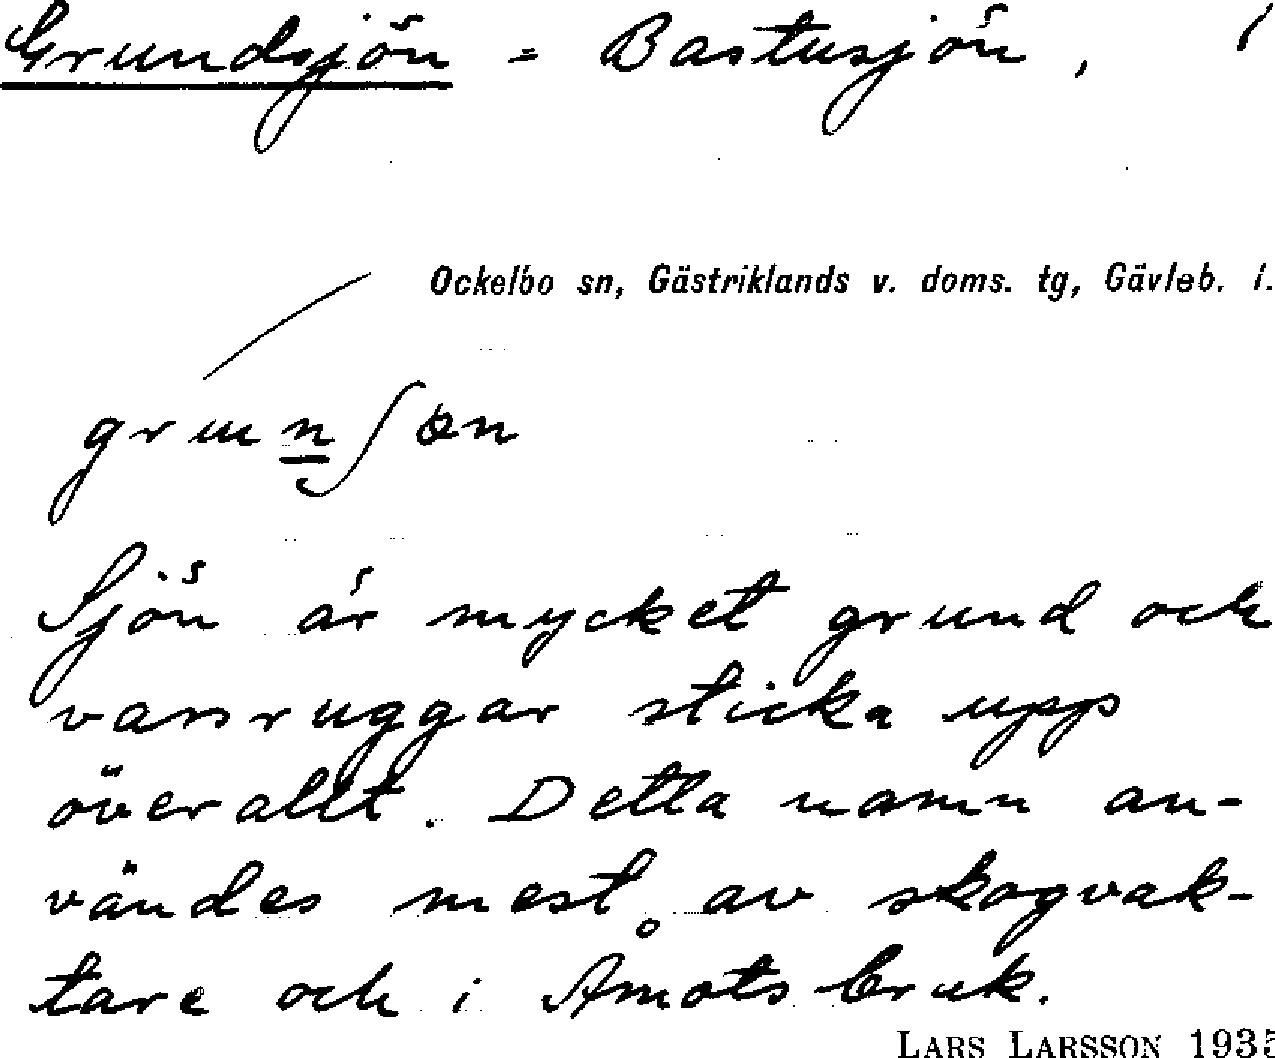 Grundsjön = Bastusjön,
Ockelbo sn, Gästriklands v. doms. tg, Gävleb. l.
Sjön är mycket grund och
vassruggar sticka upp
överallt. Detta namn an-
vändes mest av skogvak-
tare och i Åmots bruk.
LARS LARSSON 1935